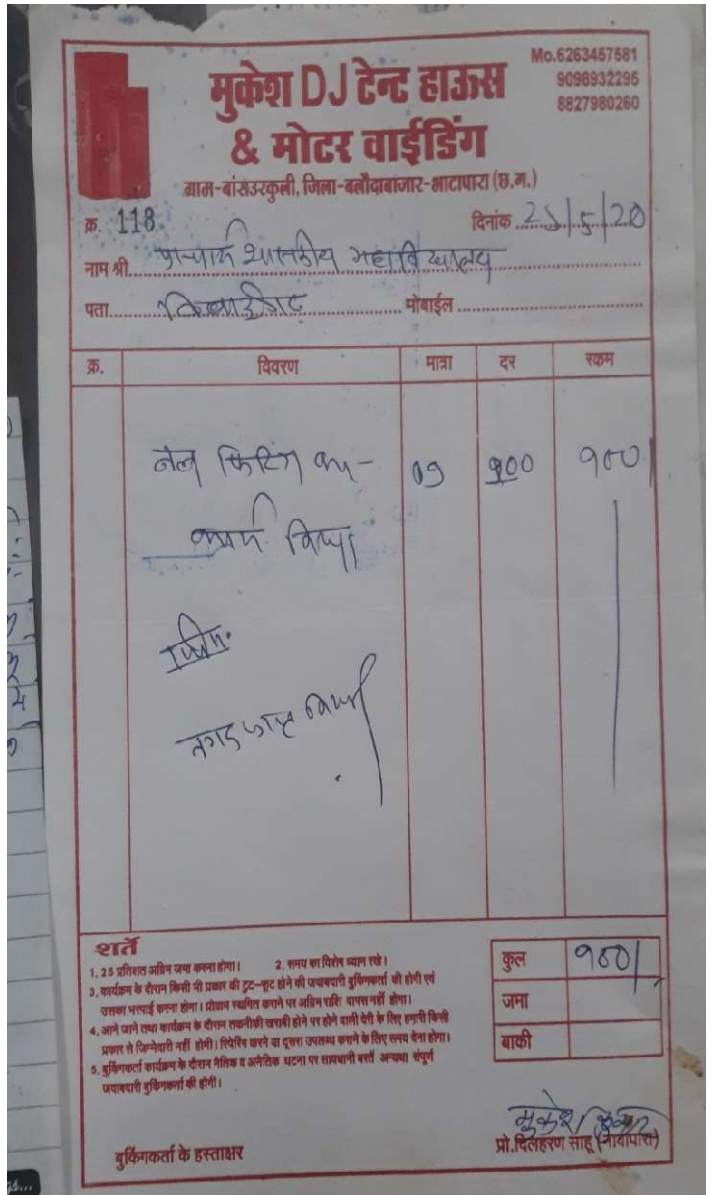 Mo.6263457581
9098932295
8827980260
मुकेश DJ टेन्ट हाऊस
& मोटर वाईडिंग
ग्राम-बांसउरकुली, जिला-बलौदाबाजार-भाटापारा (छ.ग.)
क्र. 118 दिनांक /5/20
नाम श्री प्राचार्य शासकीय महाविद्यालय
पता मोबाईल
क्र. विवरण मात्रा दर रकम
नल फिटिंग का- 100
कार्य किया
नगद प्राप्त किया
शर्ते
1. 25 प्रतिशत अग्रिम जमा करना होगा। 2. समय का विशेष ध्यान रखें।
3. कार्यक्रम के दौरान किसी भी प्रकार की टुट-फूट होने की जवाबदारी बुकिंगकर्ता की होगी एवं
उसका भरपाई करना होगा। प्रोग्राम स्थगित कराने पर अग्रिम राशि वापस नहीं होगा।
4. आने जाने तथा कार्यक्रम के दौरान तकनीकी खराबी होने पर होने वाली देरी के लिए हमारी किसी
प्रकार से जिम्मेदारी नहीं होगी। रिपेरिंग करने या दूसरा उपलब्ध कराने के लिए समय देना होगा।
5. बुकिंगकर्ता कार्यक्रम के दौरान नैतिक व अनैतिक घटना पर सावधानी बरतें अन्यथा संपूर्ण
जवाबदारी बुकिंगकर्ता की होगी।
कुल
जमा
बाकी
मुकेश कुमार
बुकिंगकर्ता के हस्ताक्षर प्रो.दिलहरण साहू